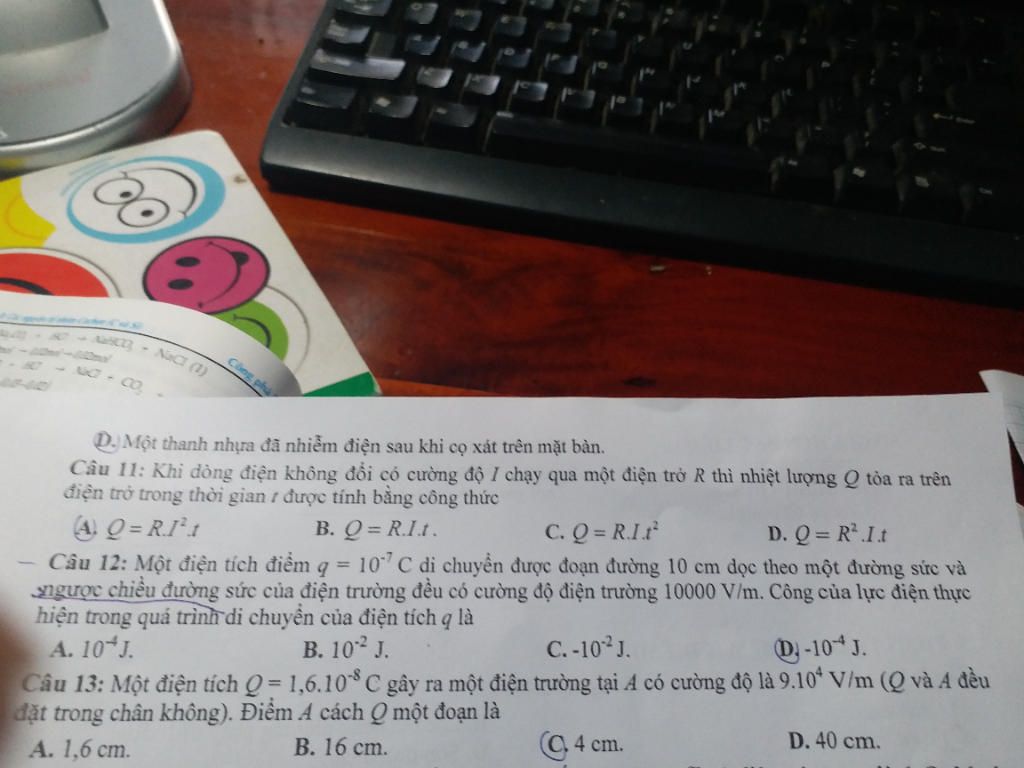 HCl → NaHCO₃ + NaCl (1)
+ HCl → NaCl + CO₂
Công phá
D. Một thanh nhựa đã nhiễm điện sau khi cọ xát trên mặt bàn.
Câu 11: Khi dòng điện không đổi có cường độ I chạy qua một điện trở R thì nhiệt lượng Q tỏa ra trên
điện trở trong thời gian t được tính bằng công thức
A. Q = R.I².t B. Q = R.I.t. C. Q = R.I.t² D. Q = R².I.t
Câu 12: Một điện tích điểm q = 10⁻⁷ C di chuyển được đoạn đường 10 cm dọc theo một đường sức và
ngược chiều đường sức của điện trường đều có cường độ điện trường 10000 V/m. Công của lực điện thực
hiện trong quá trình di chuyển của điện tích q là
A. 10⁻⁴ J. B. 10⁻² J. C. -10⁻² J. D. -10⁻⁴ J.
Câu 13: Một điện tích Q = 1,6.10⁻⁸ C gây ra một điện trường tại A có cường độ là 9.10⁴ V/m (Q và A đều
đặt trong chân không). Điểm A cách Q một đoạn là
A. 1,6 cm. B. 16 cm. C. 4 cm. D. 40 cm.